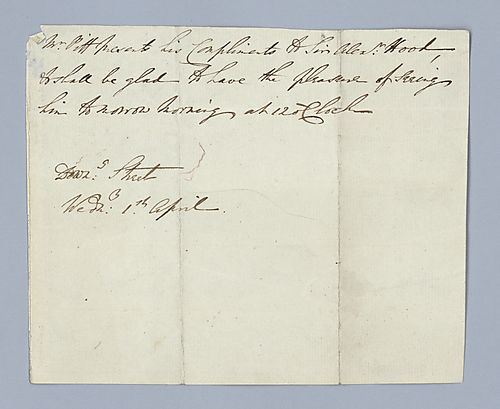 Mr. Pitt presents his Compliments to Sir Alexr. Hood,
& shall be glad to have the pleasure of seeing
him tomorrow Morning at 12 o'Clock
Downg. Street
Wedy. 1st. April.